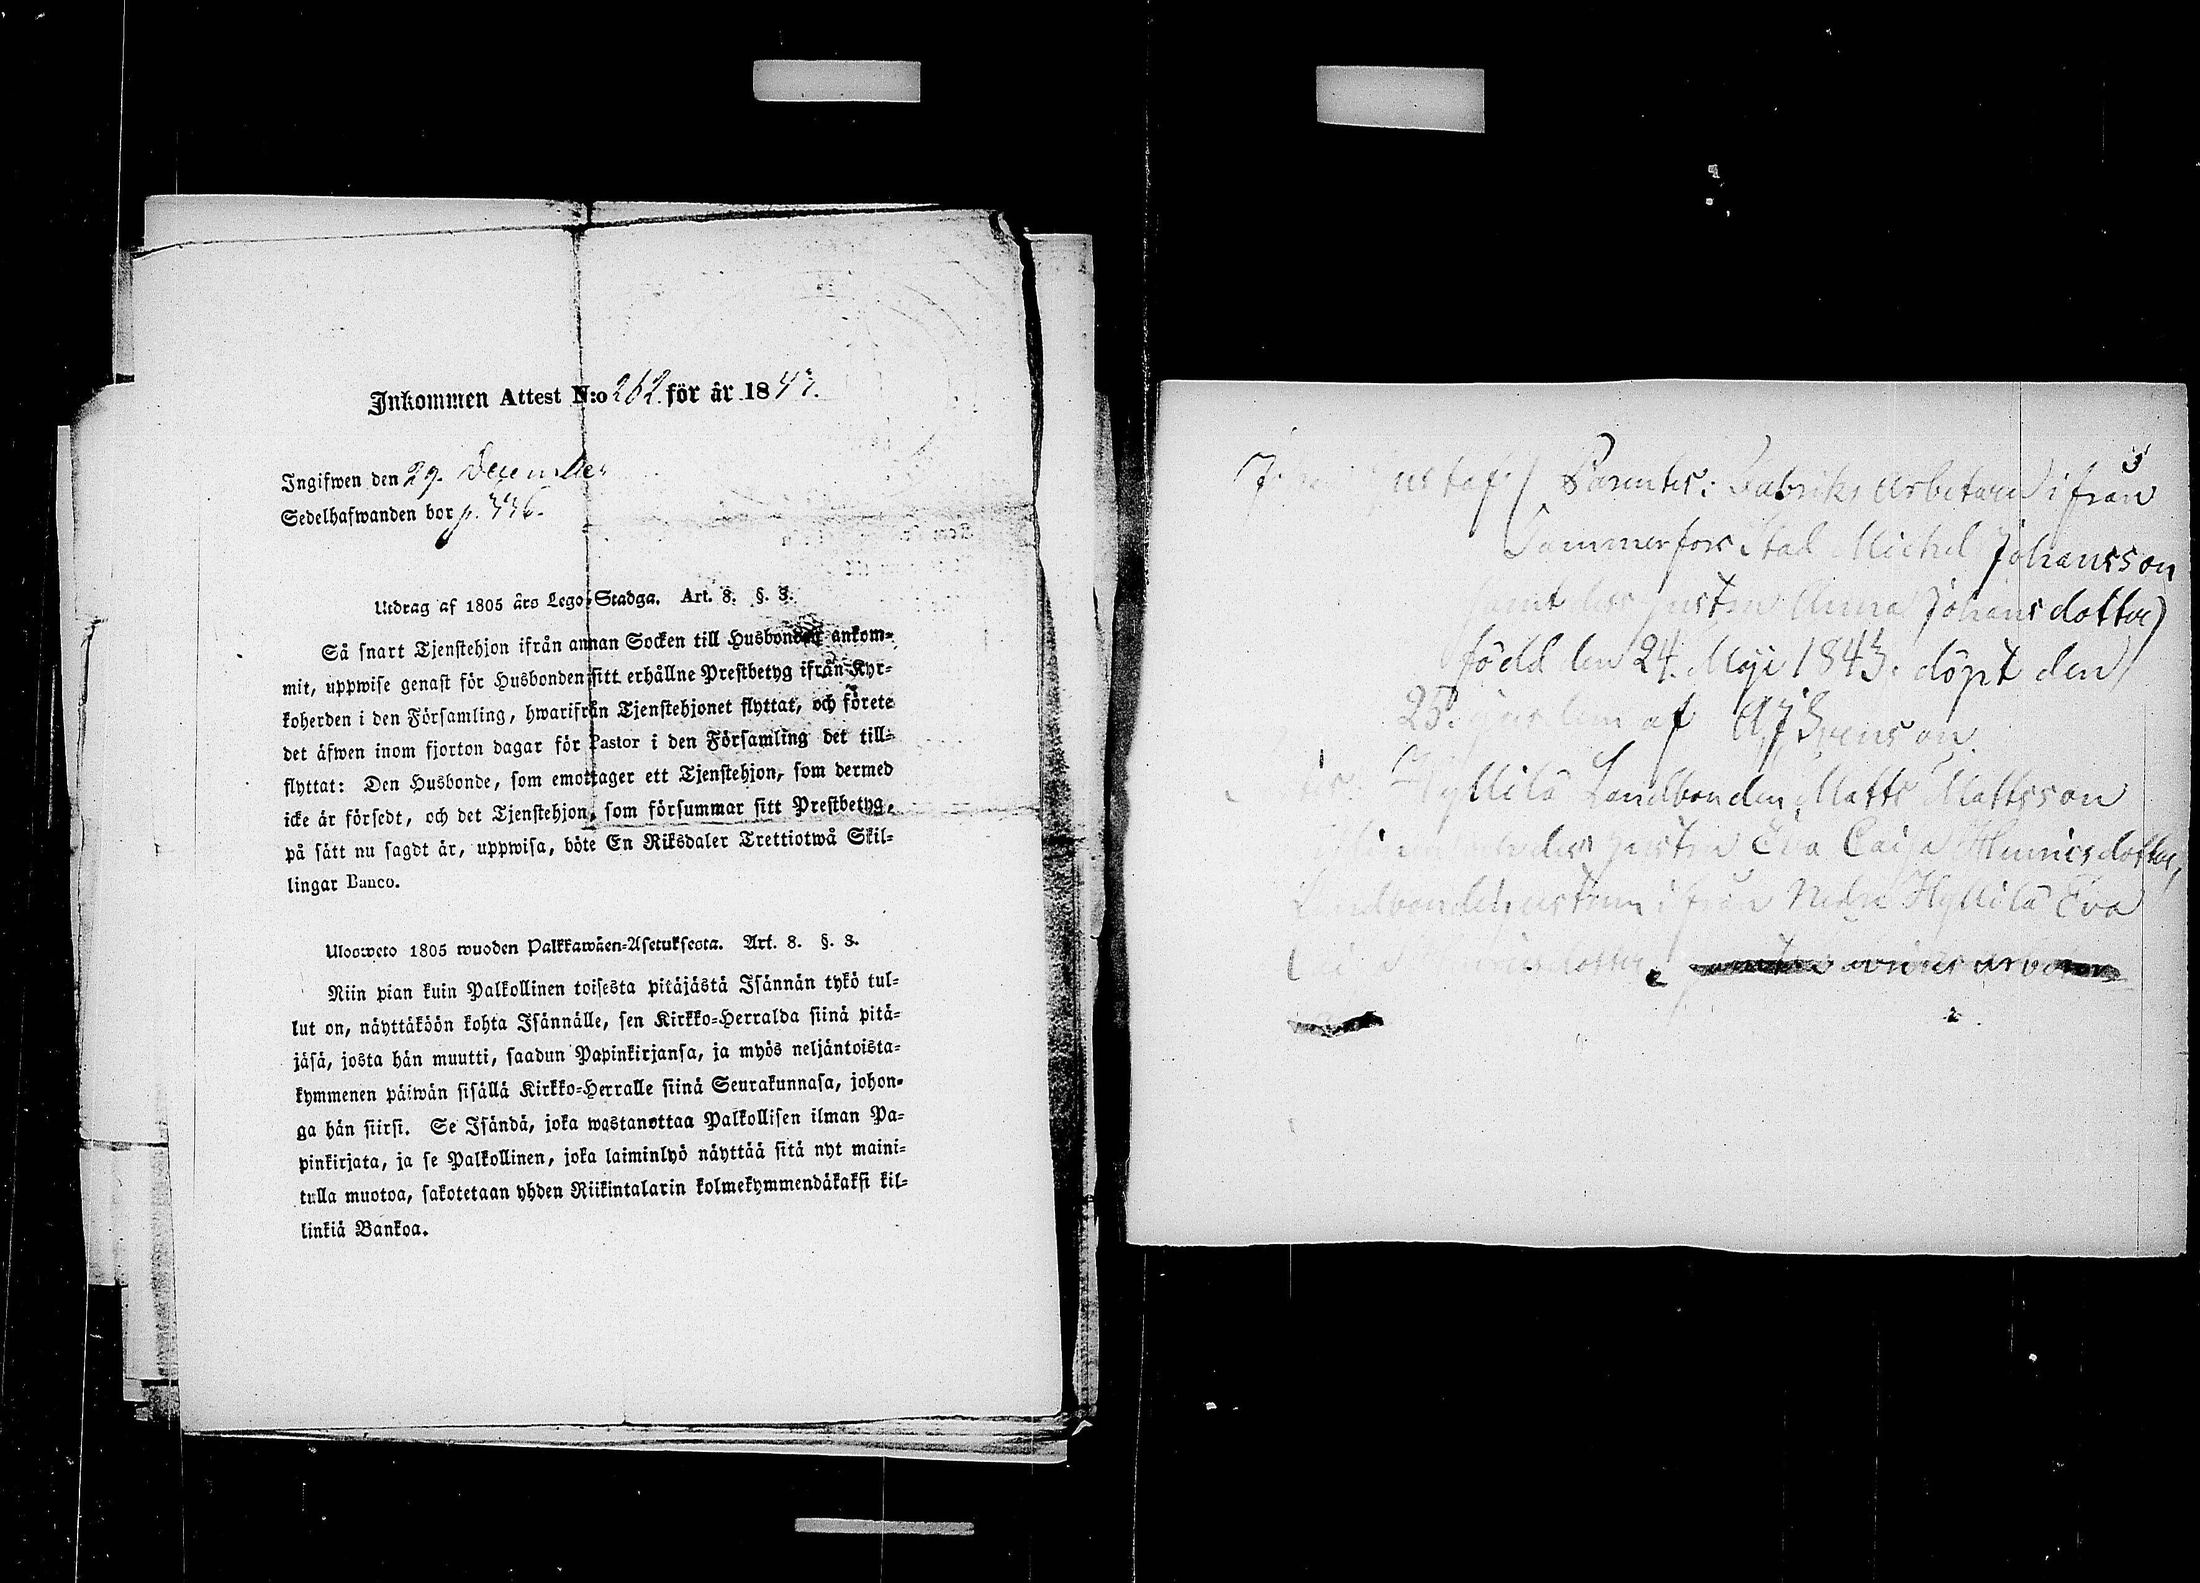 Inkommen Attest N:o 262. för år 1843.
Ingifwen den 29. December
Sedelhafwanden bor p. 336.
Utdrag af 1805 års Lego-Stadga. Art. 8. §. 3.
Så snart Tjenstehjon ifrån annan Socken till Husbonden ankom-
mit, uppwise genast för Husbonden sitt erhållne Prestbetyg ifrån Kyr-
koherden i den Församling, hwarifrån Tjenstehjonet flyttat, och förete
det äfwen inom fjorton dagar för Pastor i den Församling det till-
flyttat: Den Husbonde, som emottager ett Tjenstehjon, som dermed
icke är försedt, och det Tjenstehjon, som försummar sitt Prestbetyg,
på sätt nu sagdt är, uppwisa, böte En Riksdaler Trettiotwå Skil-
lingar Banco.
Ulosweto 1805 wuoden Palkkawäen-Asetuksesta. Art. 8. §. 3.
Niin pian kuin Palkollinen toisesta pitäjästä Isännän tykö tul-
lut on, näyttäköön kohta Isännälle, sen Kirkko-Herralda siinä pitä-
jäsä, josta hän muutti, saadun Papinkirjansa, ja myös neljäntoista-
kymmenen päiwän sisällä Kirkko-Herralle siinä Seurakunnasa, johon-
ga hän siirsi. Se Isändä, joka wastanottaa Palkollisen ilman Pa-
pinkirjata, ja se Palkollinen, joka laiminlyö näyttää sitä nyt maini-
tulla muotoa, sakotetaan yhden Riikintalarin kolmekymmendäkaksi kil-
linkiä Bankoa.
Gustaf (Parentes: Fabriks Arbetaren ifrån
Tammerfors Stad Michel Johansson
samt dess hustru Anna Johansdotter)
född den 24. Maji 1843. döpt den
25. af
Hyllilä Landbonden Matts Mattsson
dess hustru Eva Caisa Henricsdotter,
Landbondehustrun ifrån Nedre Hyllilä Eva